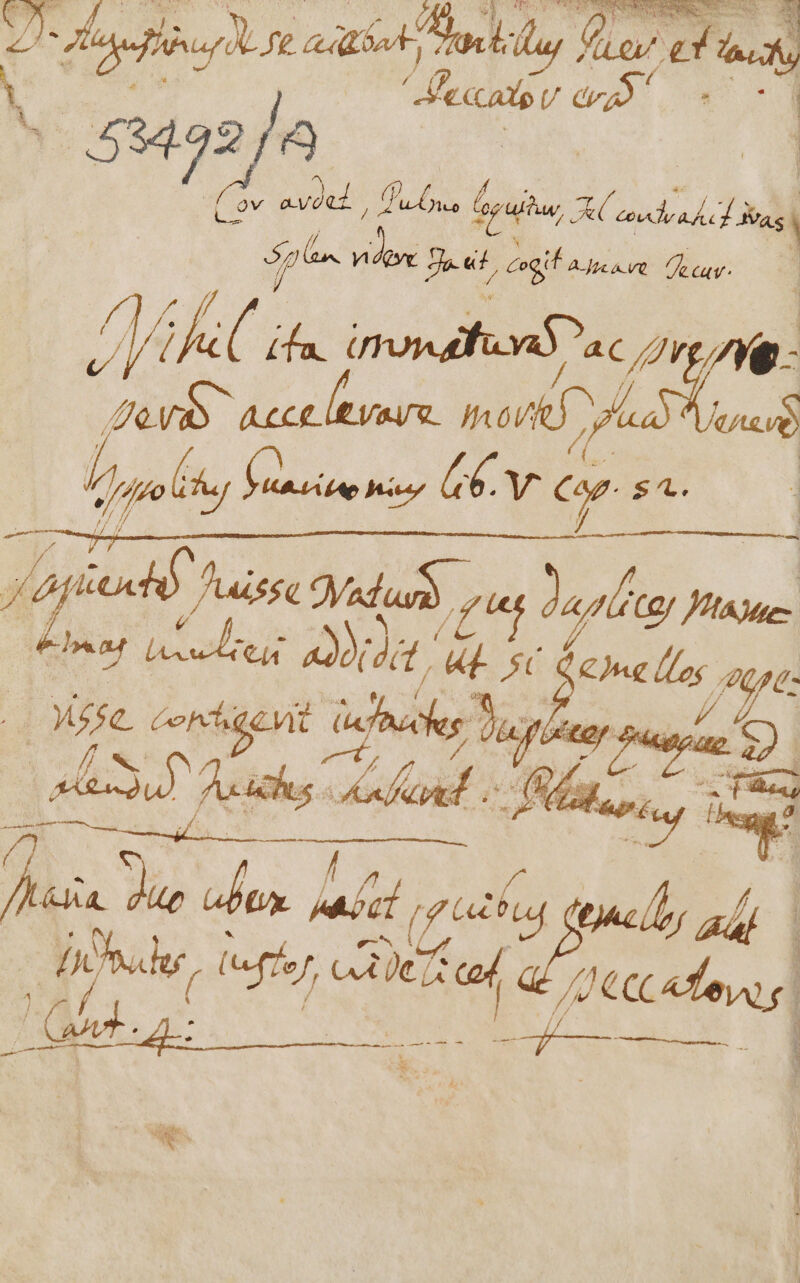 D. Augustinus de se aiebat, Tantillus Puer et tantus
Peccator erā
53492/A
Cor ardet, Pulmo loquitur, Fel contrahit iras
Splen ridere facit, cogit amare Jecur.
Nihil ita immaturā ac prępro-
perā accelerare mortē, quā Venerē
Ippolitus Guarinonius lib. V cap. 52.
Sapientē fuisse Naturā, quę duplices mam-
mas mulieri addidit, ut si gemellos pepe-
risse contigerit infantes, duplices quoque ad
alendū fontes haberet. Plutarcus
Maria duo ubera habet, quibus gemellos alat
infantes, iustos, videlicet, et peccatores
Cant. 4: